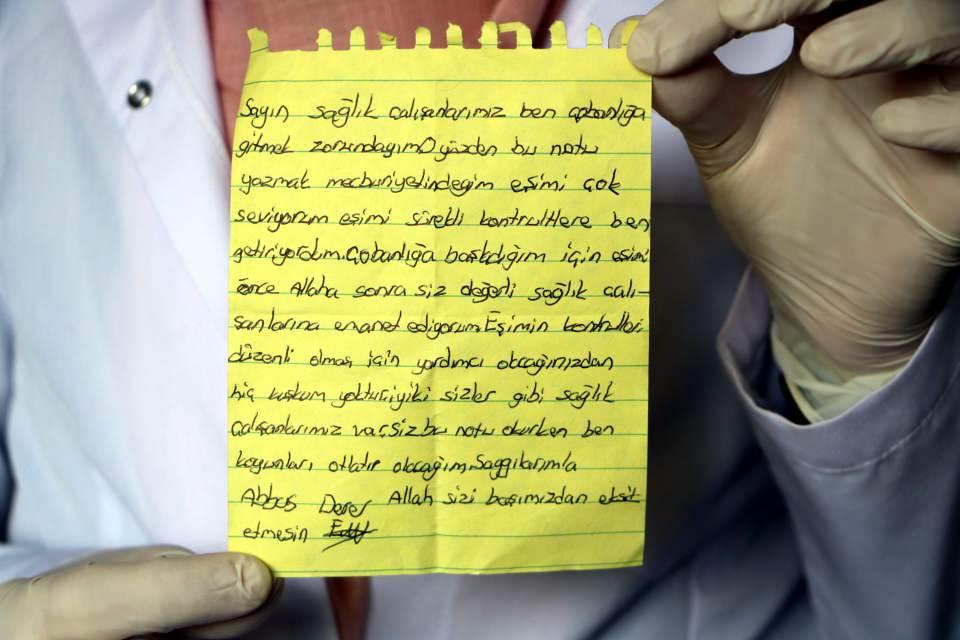 Sayın sağlık çalışanlarımız ben çobanlığa
gitmek zorundayım O yüzden bu notu
yazmak mecburiyetindeyim eşimi çok
seviyorum eşimi sürekli kontrollere ben
getiriyordum. Çobanlığa başladığım için eşimi
önce Allaha sonra siz değerli sağlık çalı-
şanlarına emanet ediyorum. Eşimin kontrolleri
düzenli olması için yardımcı olacağınızdan
hiç kuşkum yoktur iyiki sizler gibi sağlık
çalışanlarımız var. Siz bu notu okurken ben
koyunları otlatır olacağım. Saygılarımla
Abbas Allah sizi başımızdan eksik
etmesin